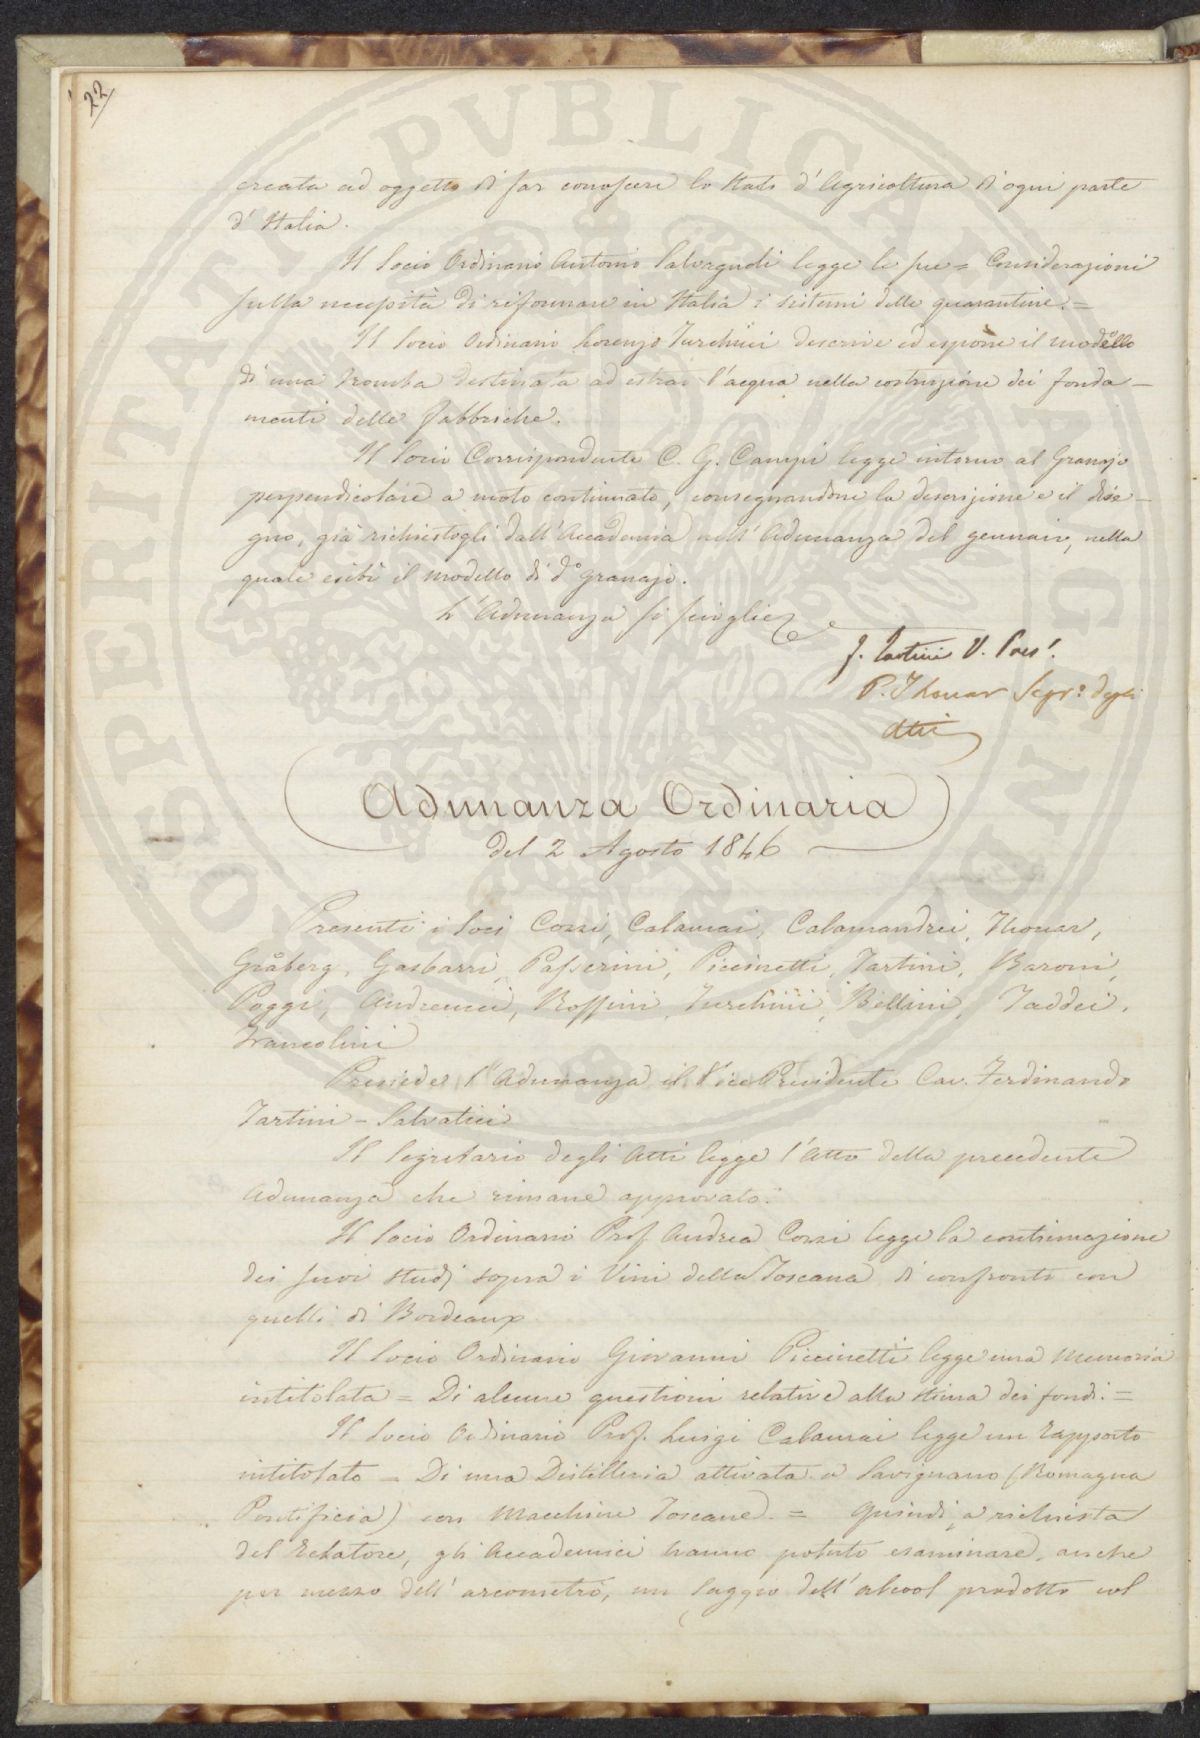 22
creata ad oggetto di far conoscere lo stato d'Agricoltura di ogni parte
d'Italia.
Il Socio Ordinario Antonio Salvagnoli legge le sue = Considerazioni
sulla necessità di riformare in Italia i sistemi delle quarantine. =
Il Socio Ordinario Lorenzo Turchini descrive ed espone il modello
di una tromba destinata ad estrar l'acqua nella costruzione dei fonda-
menti delle fabbriche.
Il Socio Corrispondente C. G. Campi legge intorno al Granajo
perpendicolare a moto continuato, consegnandone la descrizione e il dise-
gno, già richiestogli dall'Accademia nell'Adunanza del gennaio, nella
quale esibì il modello di d.º granajo.
L'Adunanza si scioglie
F. Tartini V. Pres.e
P. Thouar Segr.º degli
Atti
Adunanza Ordinaria
del 2 Agosto 1846
Presenti i Soci Cozzi, Calamai, Calamandrei, Thouar,
Gråberg, Gasbarri, Passerini, Piccinetti, Tartini, Baroni,
Poggi, Andreucci, Roffini, Turchini, Bellini, Taddei,
Francolini
Presiede l'Adunanza il Vice Presidente Cav. Ferdinando
Tartini-Salvatici
Il Segretario degli Atti legge l'Atto della precedente
Adunanza che rimane approvato.
Il Socio Ordinario Prof. Andrea Cozzi legge la continuazione
dei suoi studj sopra i Vini della Toscana di confronto con
quelli di Bordeaux
Il Socio Ordinario Giovanni Piccinetti legge una Memoria
intitolata = Di alcune questioni relative alla stima dei fondi. =
Il Socio Ordinario Prof. Luigi Calamai legge un Rapporto
intitolato = Di una Distilleria attivata a Savignano (Romagna
Pontificia) con Macchine Toscane. = Quindi, a richiesta
del Relatore, gli Accademici hanno potuto esaminare, anche
per mezzo dell'areometro, un saggio dell'alcool prodotto col
PROSPERITATI PVBLICAE AVGENDAE